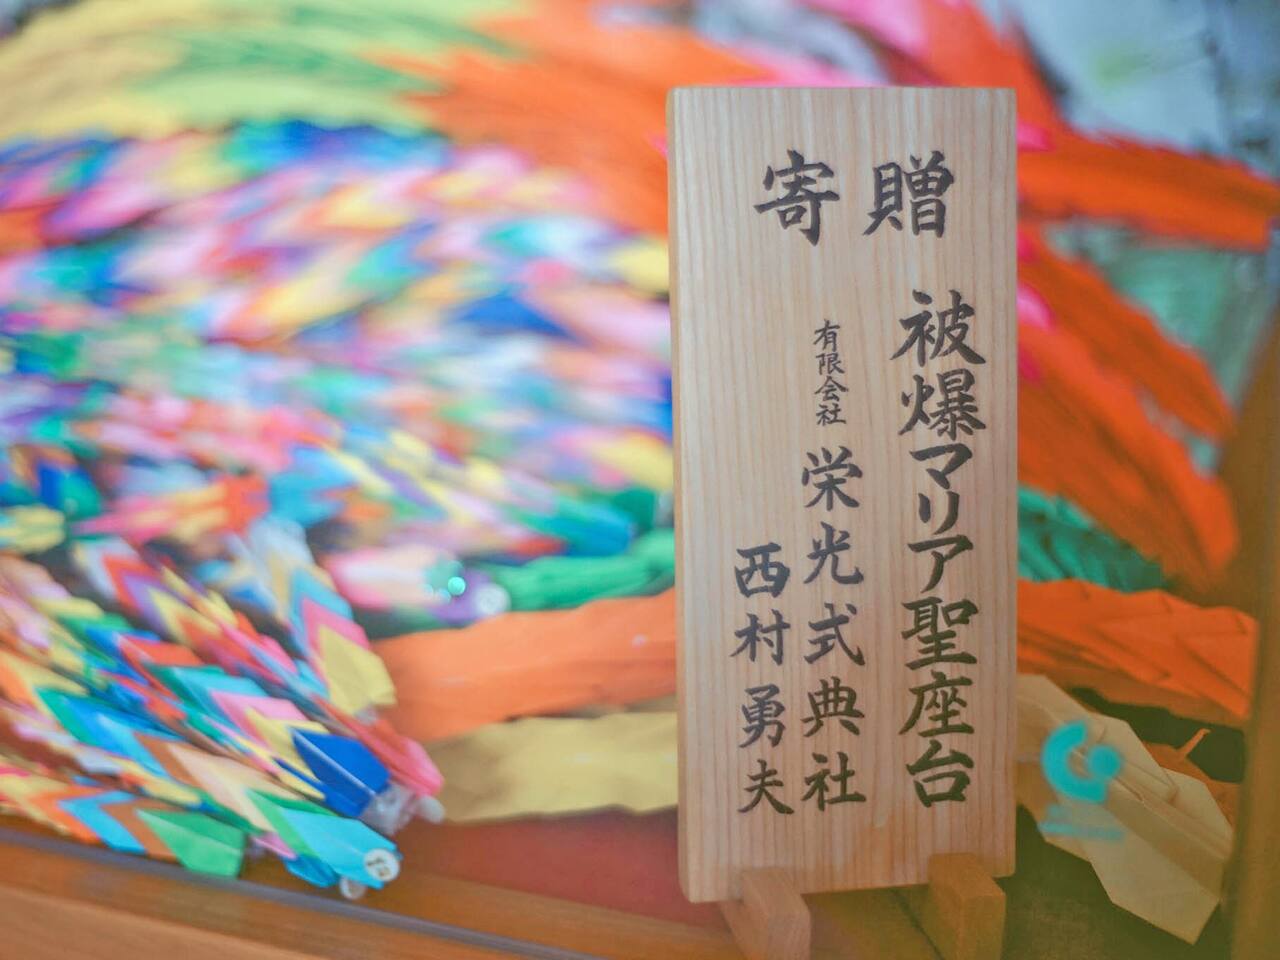 寄贈
被爆マリア聖座台
有限会社 栄光式典社
西村勇夫